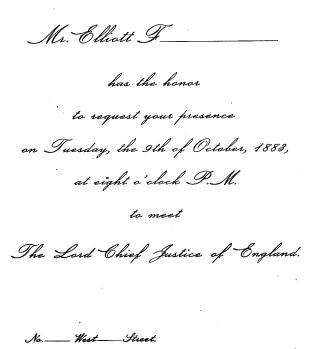 Mr. Elliott F________
has the honor
to request your presence
on Tuesday, the 9th of October, 1883,
at eight o'clock P.M.
to meet
The Lord Chief Justice of England.
No.____West____Street.